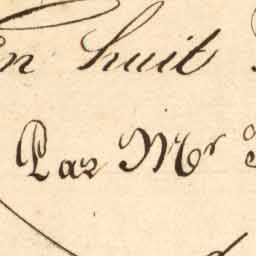 en huit
Par Mr